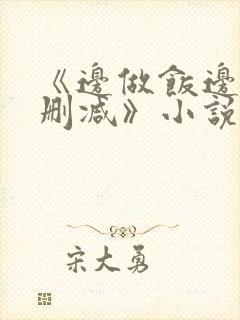 《邊做飯邊
刪減》小說
宋大勇